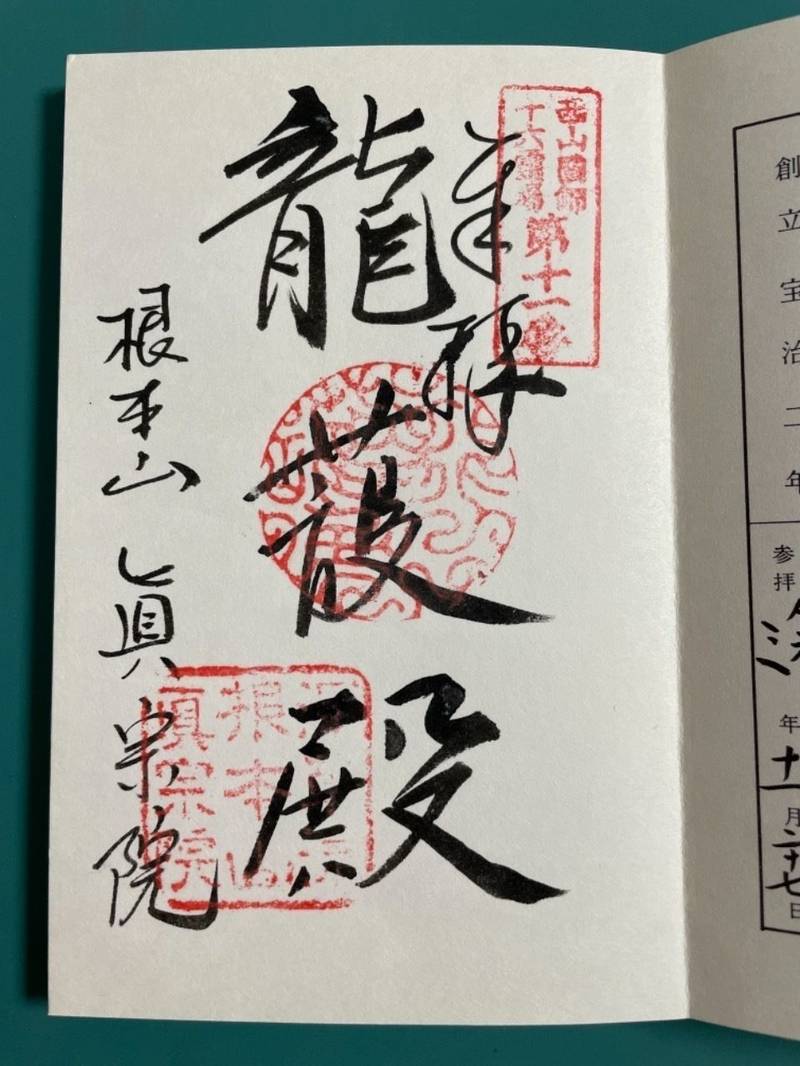 西山國師
十六靈場
第十一番
奉拝
龍
殿
根本山 眞宗院
根本山
眞宗院
創立宝治二年
参拝
年十一月二十七日